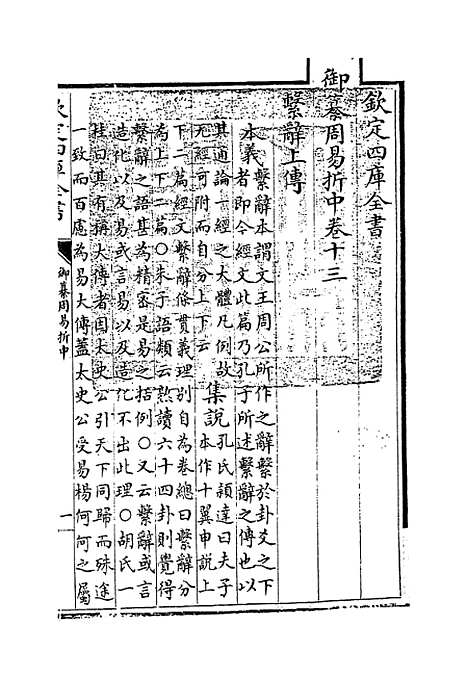 欽定四庫全書
御纂周易折中卷十三
繫辭上傳
本義繫辭本謂文王周公所作之辭繫於卦爻之下
者即今經文此篇乃孔子所述繫辭之傳也以
其通論一經之大體凡例故
无經可附而自分上下云
集說孔氏穎達曰夫子
本作十翼申說上
下二篇經文繫辭條貫義理別自為卷總曰繫辭分
為上下二篇○朱子語類云熟讀六十四卦則覺得
繫辭之語甚為精密是易之括例○又云繫辭或言
造化以及易或言易以及造化不出此理○胡氏一
桂曰其有稱大傳者因太史公引天下同歸而殊途
一致而百慮為易大傳蓋太史公受易楊何何之屬
欽定四庫全書
御纂周易折中
一